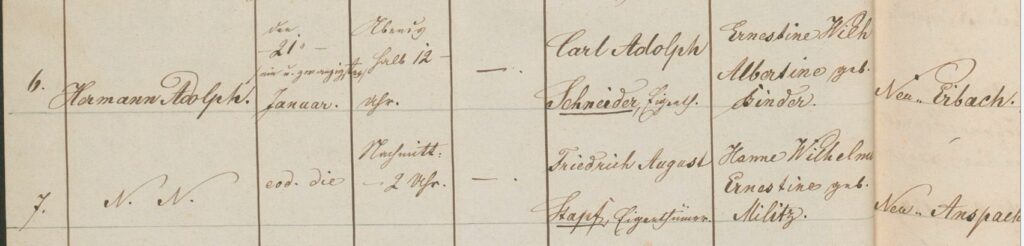 6.
Hermann Adolph.
den
21.
ein u. zwanzigsten
Januar.
Abends
halb 12
Uhr.
—.
Carl Adolph
Schneider, Eigenth.
Ernestine Wilh
Albertine geb.
Binder.
Neu-Erbach.
7.
N. N.
eod. die
Nachmitt:
2 Uhr.
—.
Friedrich August
Stapf, Eigenthümer.
Hanne Wilhelm
Ernestine geb.
Militz.
Neu-Anspach